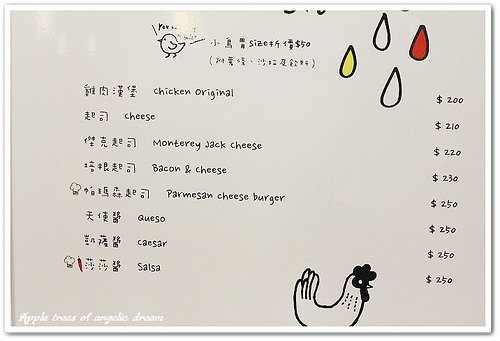 小鳥胃size折價$50
(附薯條、沙拉及飲料)
雞肉漢堡 Chicken Original $200
起司 Cheese $210
傑克起司 Monterey Jack Cheese $220
培根起司 Bacon & Cheese $230
帕瑪森起司 Parmesan cheese burger $250
天使醬 Queso $250
凱薩醬 Caesar $250
莎莎醬 Salsa $250
Apple trees of angelic dream